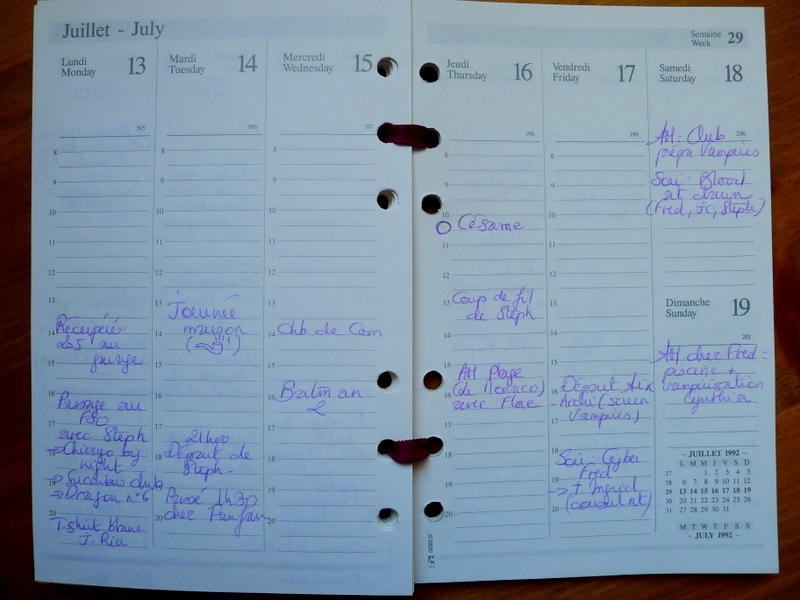 Juillet - July
Lundi
Monday 13
195
8
9
10
11
12
13
Récupéré
14
205 au
garage
15
16
Passage au
17
avec Steph
18
→ Chicago by
night
19
→ Succubus club
→ Dragon n°6
20
T-shirt blanc
Mardi
Tuesday 14
196
8
9
10
11
12
13
Journée
maison
14
15
16
17
21h00
Départ de
18
Steph -
19
Passé 1h30
chez
20
Mercredi
Wednesday 15
197
8
9
10
11
12
13
14
Club de Com
15
Batman
16
2
17
18
19
20
Jeudi
Thursday 16
198
8
9
10
Césame
11
12
Coup de fil
13
de Steph
14
15
AM Plage
(de Monaco)
16
avec Flore
17
18
19
20
Vendredi
Friday 17
199
8
9
10
11
12
13
14
15
Départ Aix
16
Vampires)
17
18
Soir : Cyber
Fred
19
→ + Ingrid
20
Semaine
Week 29
Samedi
Saturday 18
200
AM : Club
prépa Vampires
Soir : Blood
at dawn
(Fred, JC, Steph)
Dimanche
Sunday 19
201
AM chez Fred :
piscine +
vampirisation
Cynthia
– JUILLET 1992 –
L M M J V S D
1 2 3 4 5
27
28 6 7 8 9 10 11 12
29 13 14 15 16 17 18 19
30 20 21 22 23 24 25 26
31 27 28 29 30 31
M T W T F S S
– JULY 1992 –